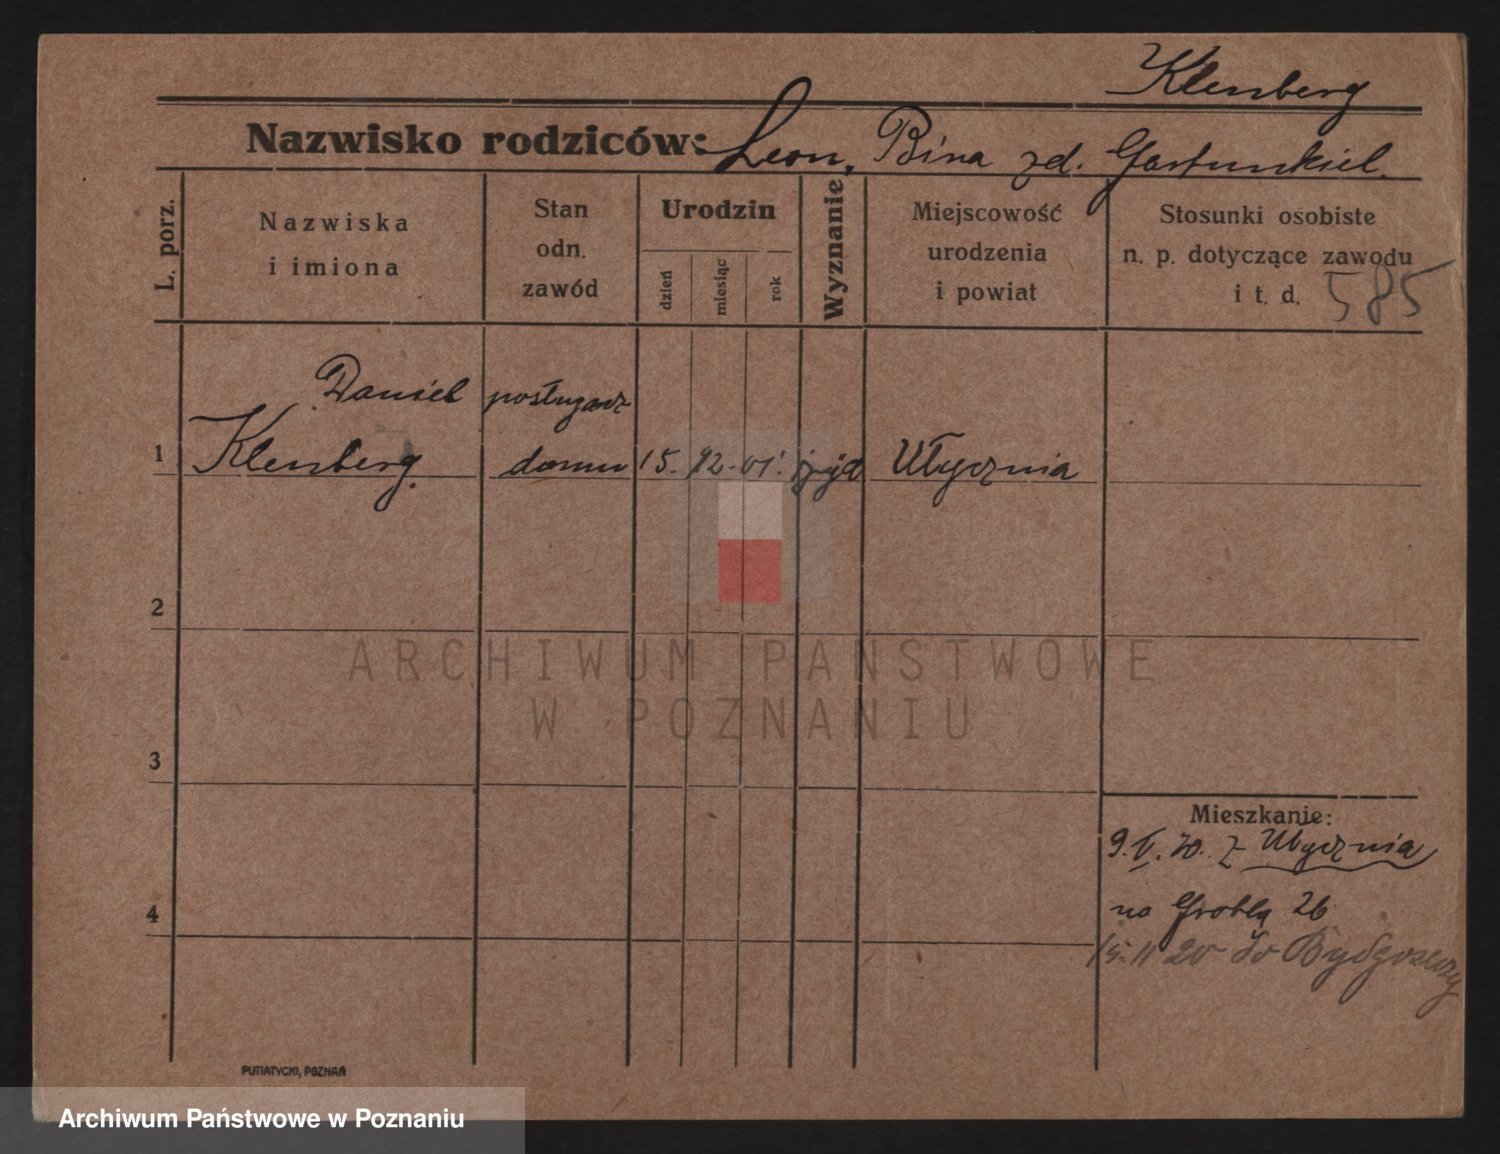 Klenberg
Nazwisko rodziców: Leon, Bina zd. Gartunkiel.
L. porz.
Nazwiska
i imiona
Stan
odn.
zawód
Urodzin
dzień
miesiąc
rok
Wyznanie
Miejscowość
urodzenia
i powiat
Stosunki osobiste
n. p. dotyczące zawodu
i t. d.
585
Daniel
posługacz
1
Klenberg
domu
15. 12. 01.
Ułycznia
2
ARCHIWUM PAŃSTWOWE
W POZNANIU
3
Mieszkanie:
9. V. 20. z Ułycznia
4
na Groblą 26
15. 11 20 do Bydgoszczy
PUTIATYCKI, POZNAŃ
Archiwum Państwowe w Poznaniu